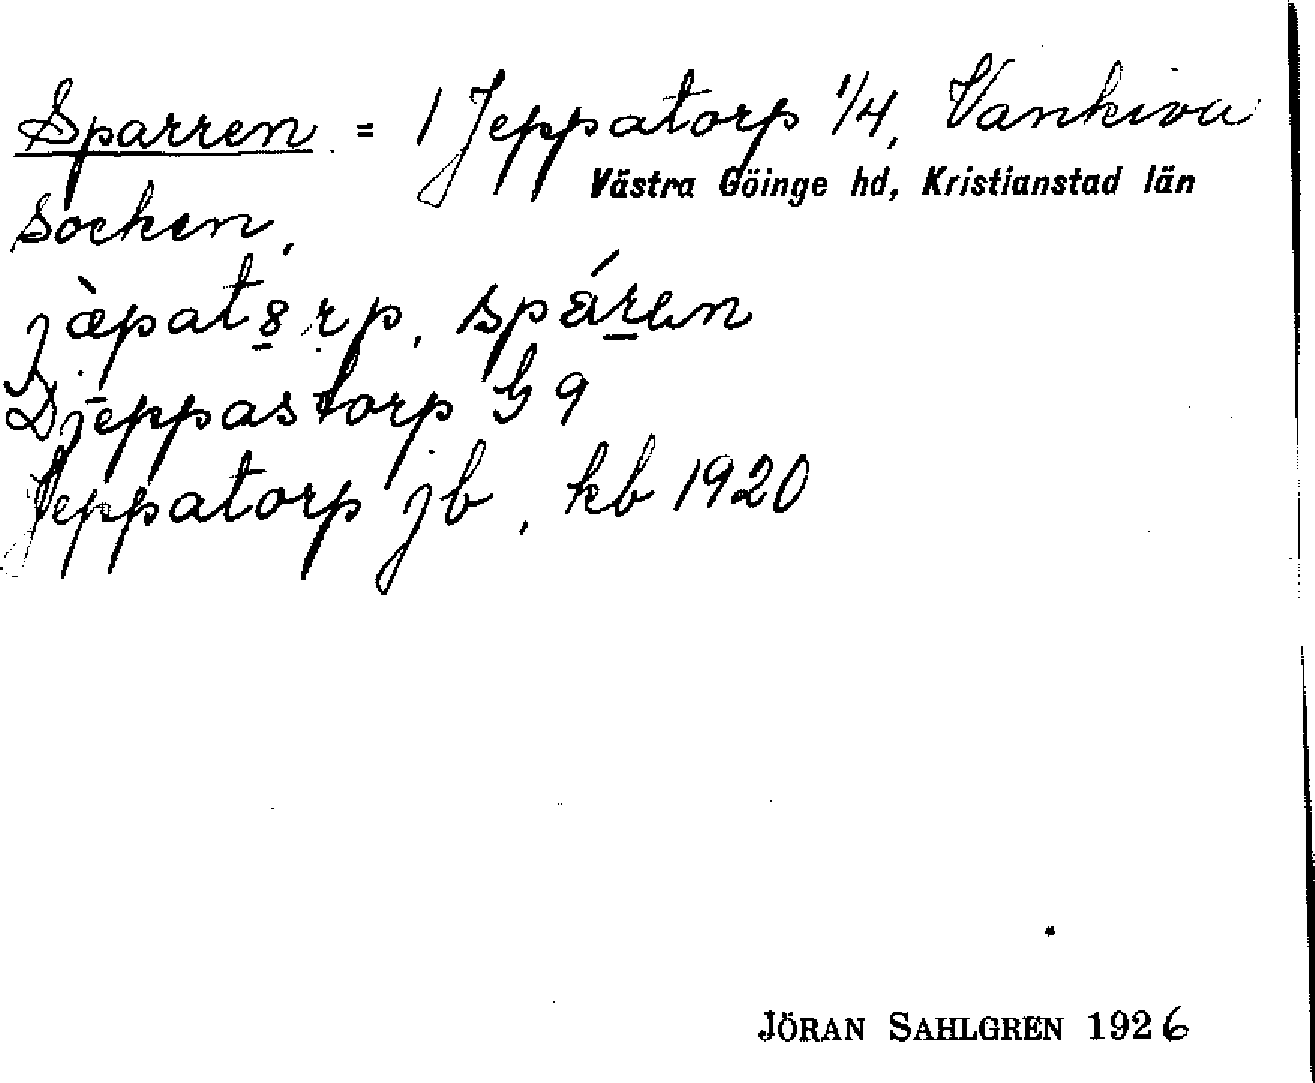 Sparren = 1 Jeppatorp 1/4, Vankiva
Västra Göinge hd, Kristianstad län
socken,
jæ̀patȣrp, spáren
Djeppastorp G 9
Jeppatorp jb, kb 1920
JÖRAN SAHLGREN 1926